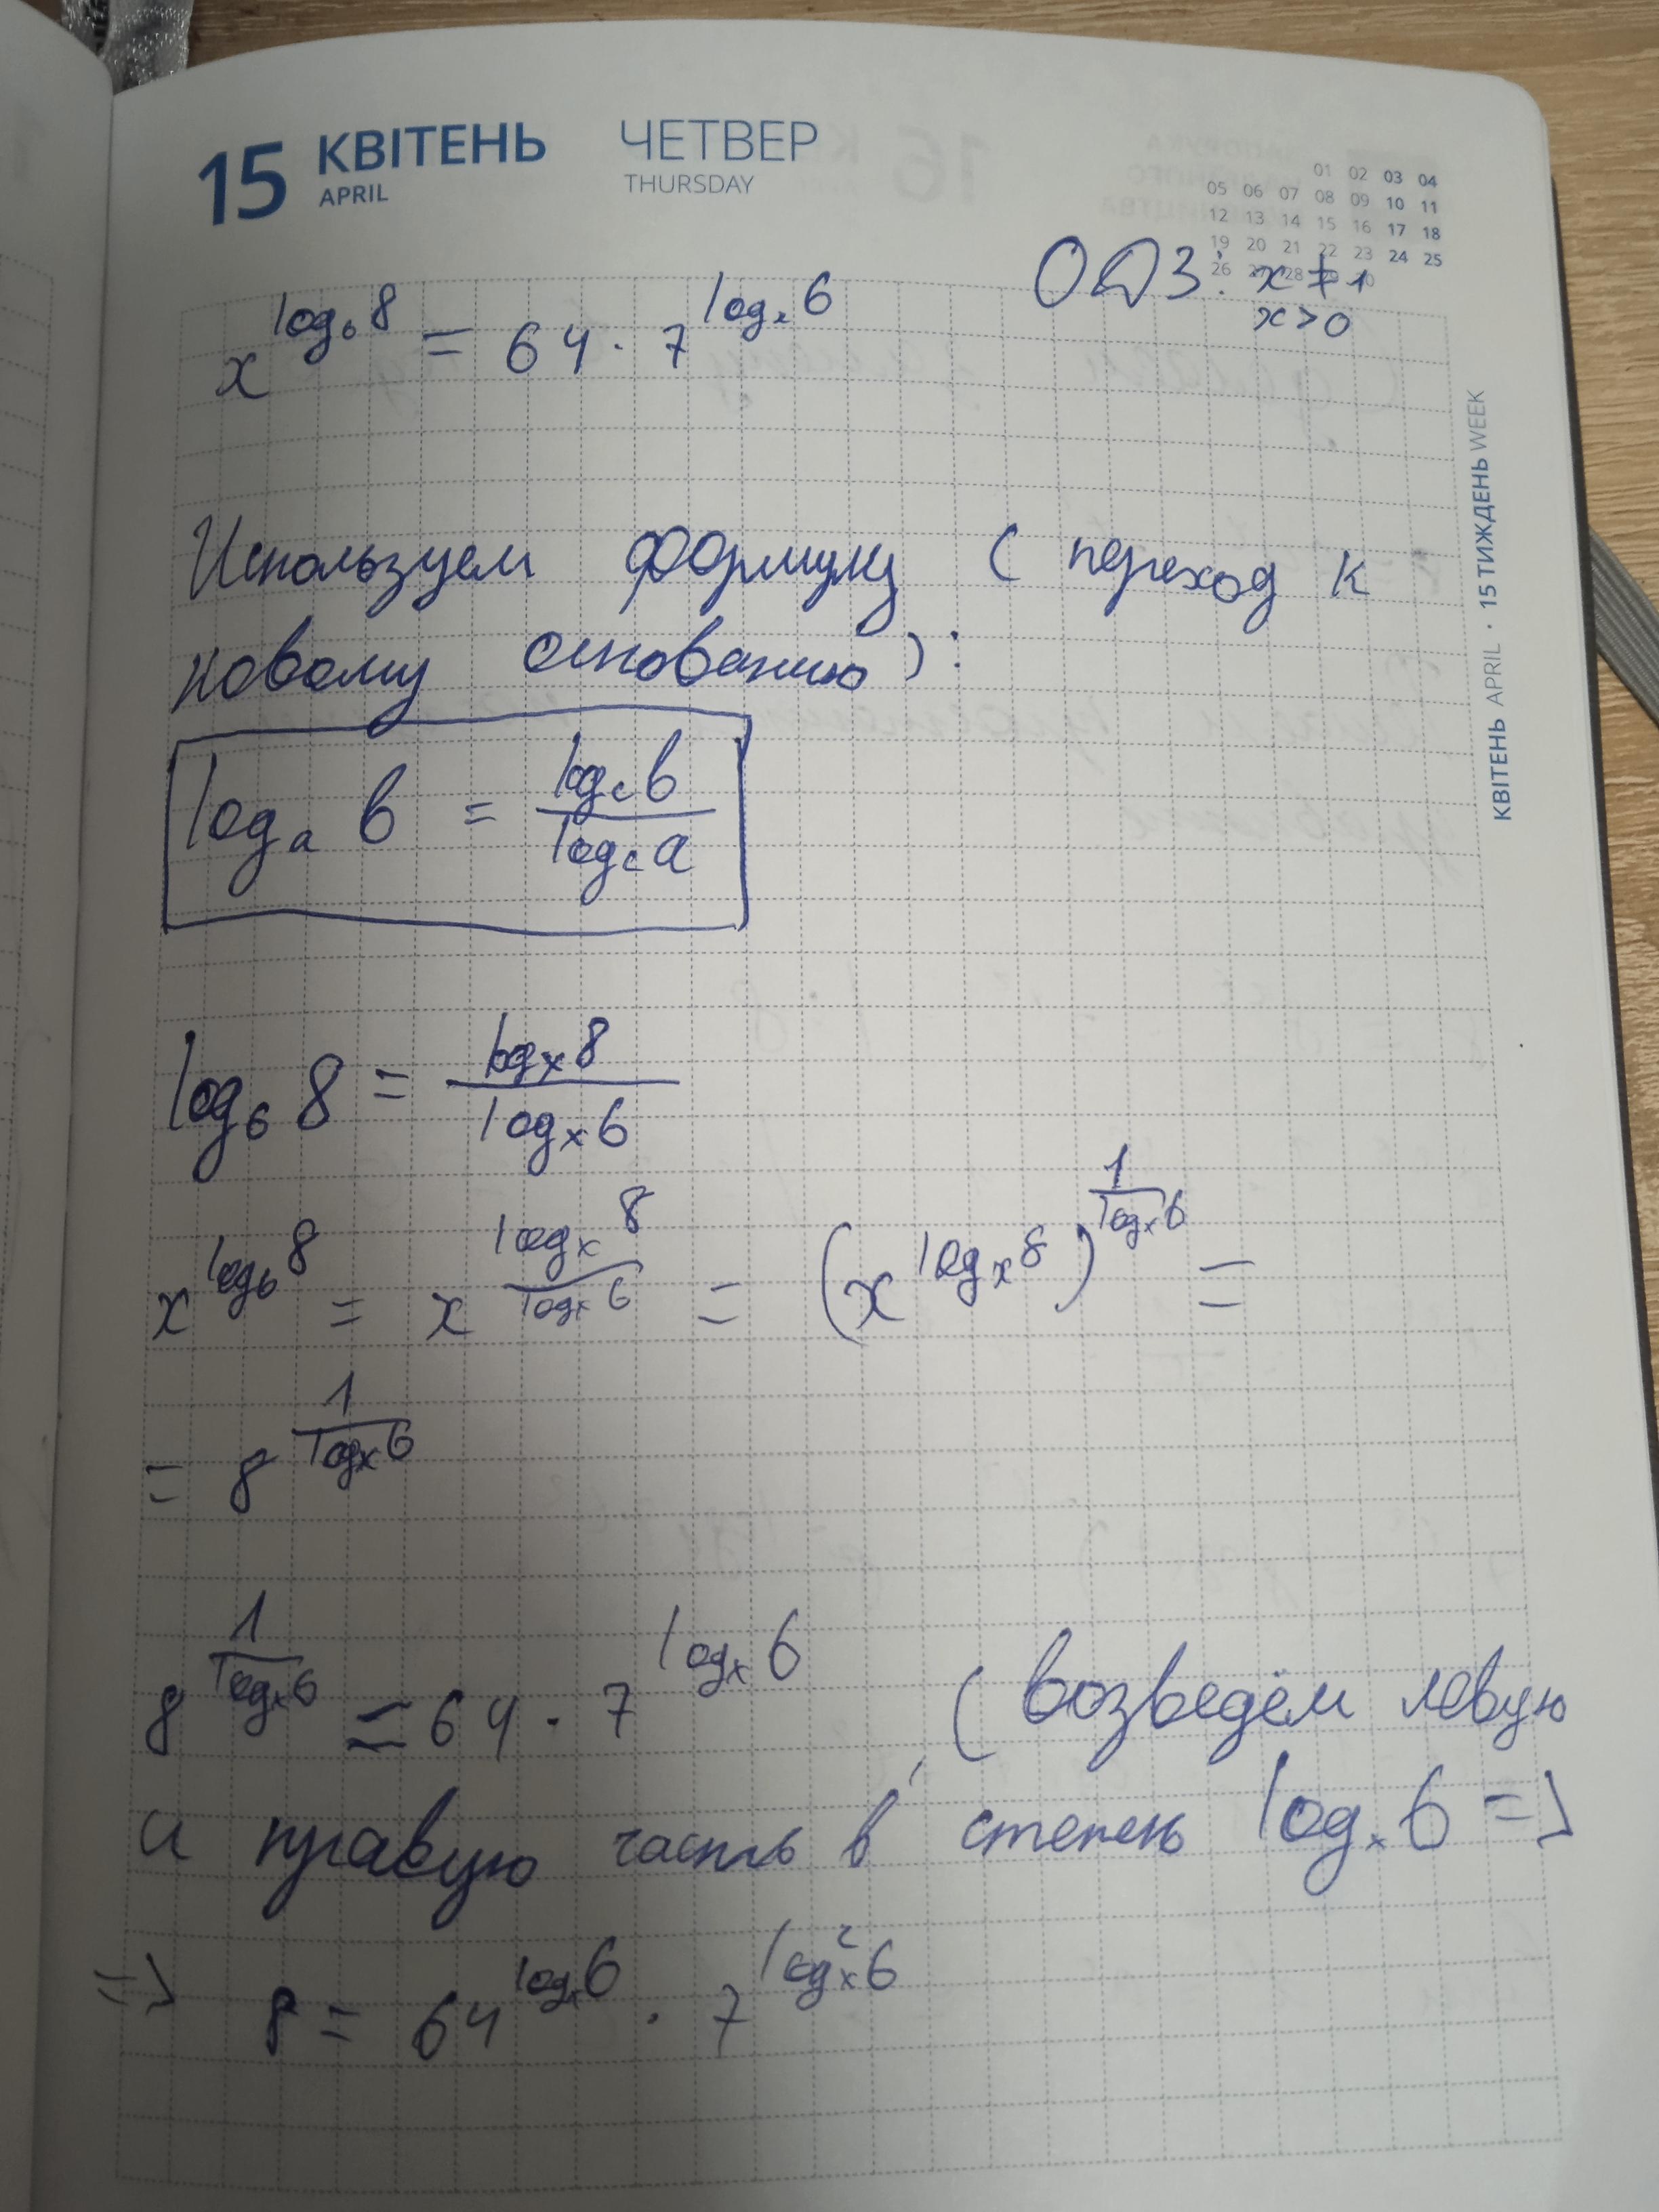 15 КВІТЕНЬ ЧЕТВЕР
APRIL THURSDAY
01 02 03 04
05 06 07 08 09 10 11
12 13 14 15 16 17 18
19 20 21 22 23 24 25
26 28
ОДЗ: x ≠ 1
x > 0
x^(log₆ 8) = 64 · 7^(logₓ 6)
Используем формулу (переход к
новому основанию):
logₐ b = log_c b / log_c a
log₆ 8 = logₓ 8 / logₓ 6
x^(log₆ 8) = x^(logₓ 8 / logₓ 6) = (x^(logₓ 8))^(1 / logₓ 6) =
= 8^(1 / logₓ 6)
8^(1 / logₓ 6) = 64 · 7^(logₓ 6) (возведём левую
и правую часть в степень logₓ 6 =>
=> 8 = 64^(logₓ 6) · 7^(log²ₓ 6)
КВІТЕНЬ APRIL · 15 ТИЖДЕНЬ WEEK